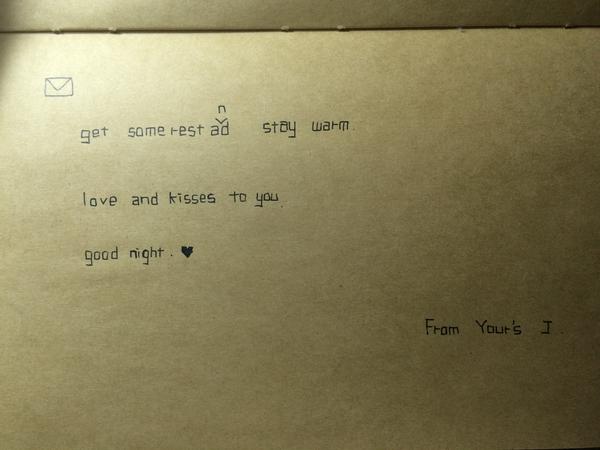 get some rest and stay warm.
love and kisses to you.
good night. ♥
From Your's J.